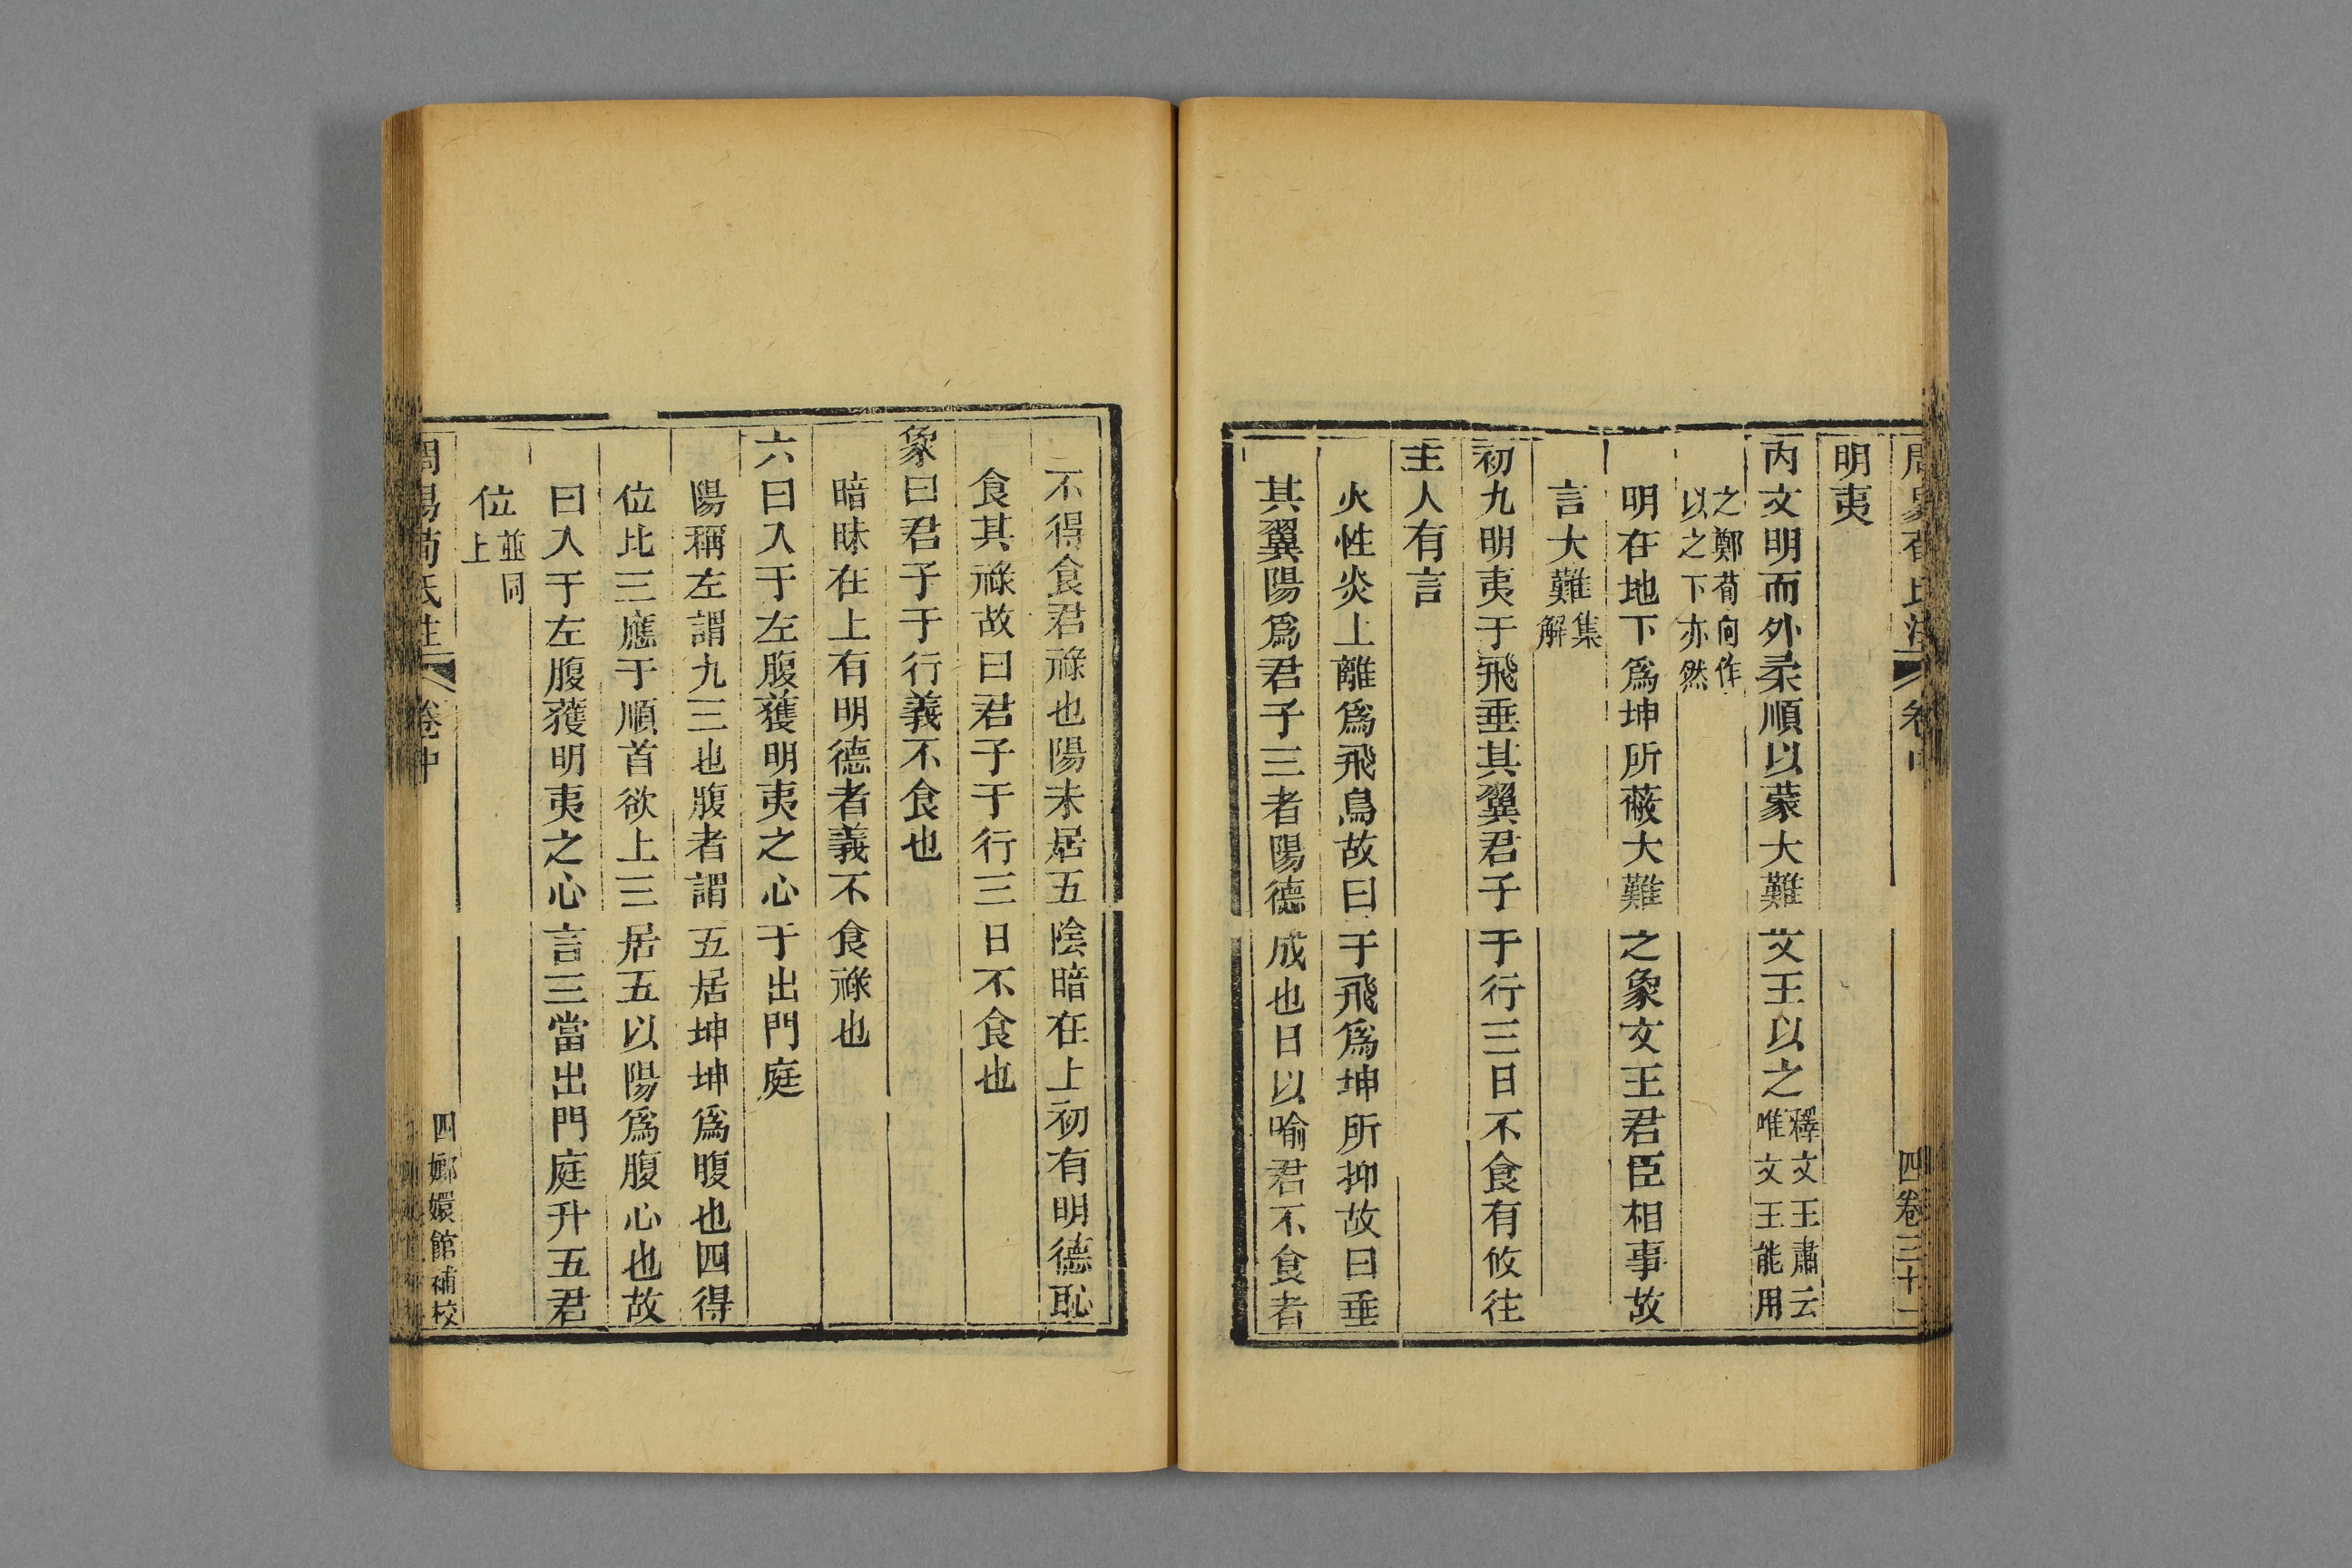 明夷
内文明而外柔順以蒙大難文王以之釋文王肅云唯文王能用
之鄭荀向作以之下亦然
明在地下爲坤所蔽大難之象文王君臣相事故
言大難集解
初九明夷于飛垂其翼君子于行三日不食有攸往
主人有言
火性炎上離爲飛鳥故曰于飛爲坤所抑故曰垂
其翼陽爲君子三者陽德成也日以喻君不食者
不得食君祿也陽未居五陰暗在上初有明德恥
食其祿故曰君子于行三日不食也
象曰君子于行義不食也
暗昧在上有明德者義不食祿也
六曰入于左腹獲明夷之心于出門庭
陽稱左謂九三也腹者謂五居坤坤爲腹也四得
位比三應于順首欲上三居五以陽爲腹心也故
曰入于左腹獲明夷之心言三當出門庭升五君
位並同上
周易荀氏注 卷中 四 嫏嬛館補校